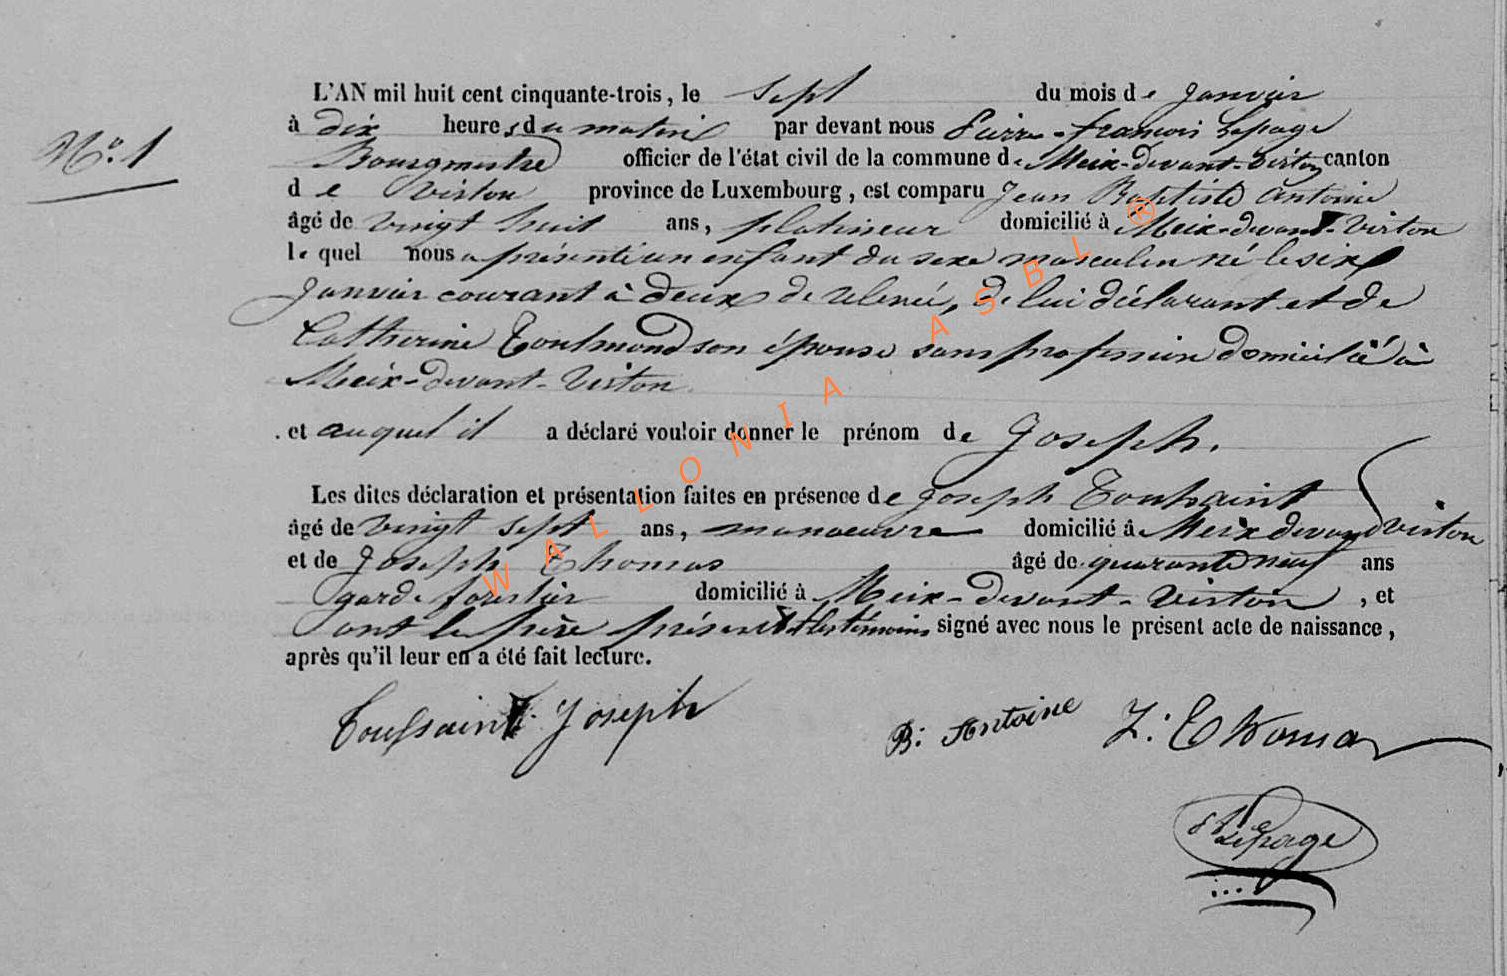 N° 1
L'AN mil huit cent cinquante-trois, le sept du mois de Janvier
à dix heures du matin par devant nous Pierre-françois Lepage
Bourgmestre officier de l'état civil de la commune de Meix-devant-Virton canton
de Virton province de Luxembourg, est comparu Jean Baptiste Antoine
âgé de vingt huit ans, platineur domicilié à Meix-devant-Virton
lequel nous a présenté un enfant du sexe masculin né le six
Janvier courant à deux de relevée, de lui déclarant et de
Catherine Toulmond son épouse sans profession domicilié à
Meix-devant-Virton
. et auquel il a déclaré vouloir donner le prénom de Joseph.
Les dites déclaration et présentation faites en présence de Joseph Toussaint
âgé de vingt sept ans, manoeuvre domicilié à Meix devant Virton
et de Joseph Thomas âgé de quarante neuf ans
garde forestier domicilié à Meix-devant-Virton, et
ont le père présent et les témoins signé avec nous le présent acte de naissance,
après qu'il leur en a été fait lecture.
Toussaint Joseph B: Antoine J: Thomas
Lepage
WALLONIA ASBL ®